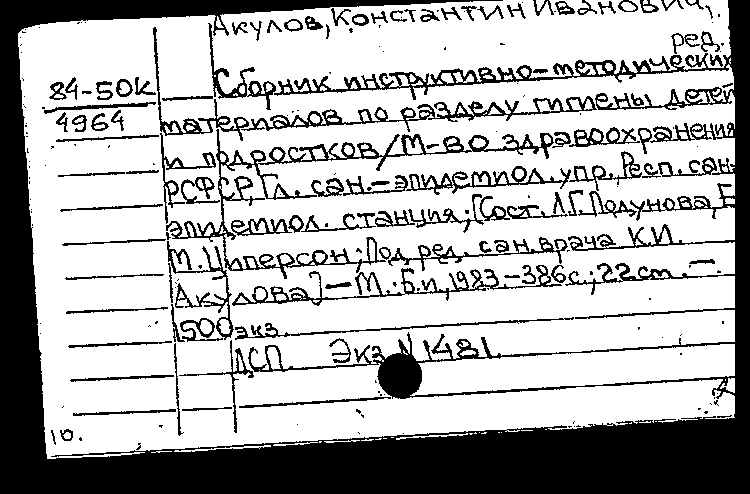 Акулов, Константин Иванович,
ред.
84-50К
4964
Сборник инструктивно-методических
материалов по разделу гигиены детей
и подростков/М-во здравоохранения
РСФСР, Гл. сан.-эпидемиол. упр., Респ. сан-
эпидемиол. станция; [Сост. Л.Г. Подунова, Е
М. Циперсон; Под ред. сан. врача К.И.
Акулова] — М.: Б.и., 1983. - 386с.; 22см. —
1500 экз.
ДСП. Экз N 1481.
10.